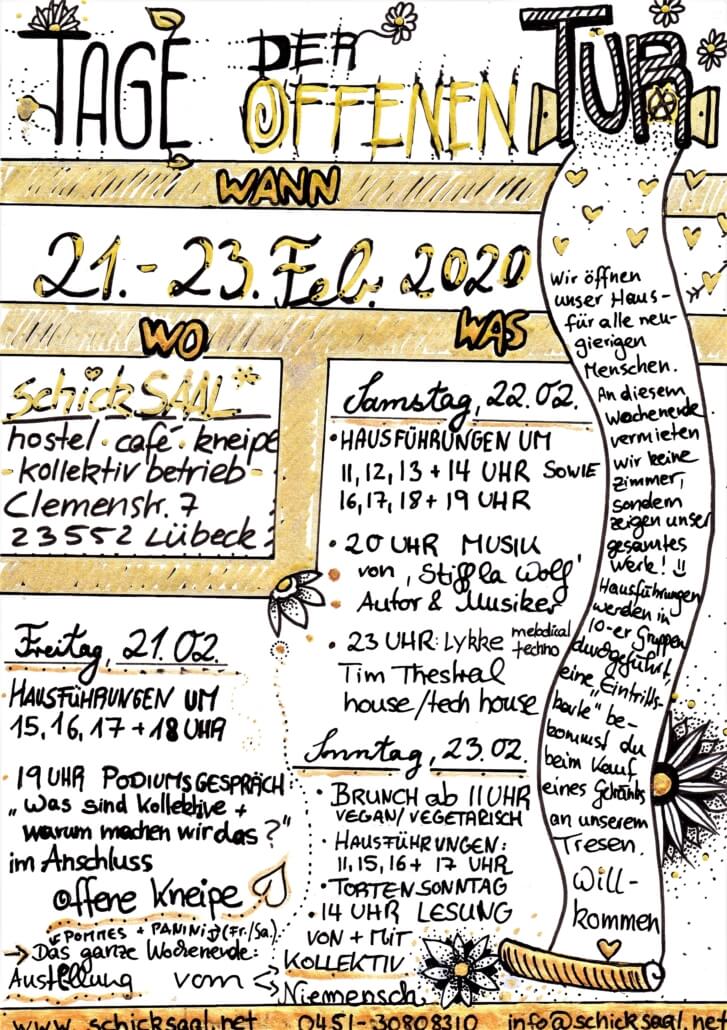 TAGE DER
OFFENEN TÜR
WANN
21.-23. Feb. 2020
WO
schickSAAL*
hostel · café · kneipe
- kollektivbetrieb -
Clemenstr. 7
23552 Lübeck
Freitag, 21.02.
· HAUSFÜHRUNGEN UM
15, 16, 17 + 18 UHR
· 19 UHR PODIUMSGESPRÄCH:
"Was sind Kollektive +
warum machen wir das?"
im Anschluss
offene Kneipe
POMMES + PANINI (Fr./Sa.)
→ Das ganze Wochenende:
Austellung vom
KOLLEKTIV
Niemensch
WAS
Samstag, 22.02.
· HAUSFÜHRUNGEN UM
11, 12, 13 + 14 UHR SOWIE
16, 17, 18 + 19 UHR
· 20 UHR MUSIK
von 'Stiffla Wolf'
Autor & Musiker
· 23 UHR: Lykke melodical
techno
Tim Thestral
house/tech house
Sonntag, 23.02.
· BRUNCH ab 11 UHR
VEGAN/VEGETARISCH
· HAUSFÜHRUNGEN:
11, 15, 16 + 17 UHR
· TORTENSONNTAG
· 14 UHR LESUNG
VON + MIT
Wir öffnen
unser Haus-
für alle neu-
gierigen
Menschen.
An diesem
Wochenende
vermieten
wir keine
Zimmer,
sondern
zeigen unser
gesamtes
Werk! :)
Hausführungen
werden in
10-er Gruppen
durchgeführt,
eine "Eintritts-
karte" be-
kommst du
beim Kauf
eines Getränks
an unserem
Tresen.
Will-
kommen
www.schicksaal.net 0451-30808310 info@schicksaal.net